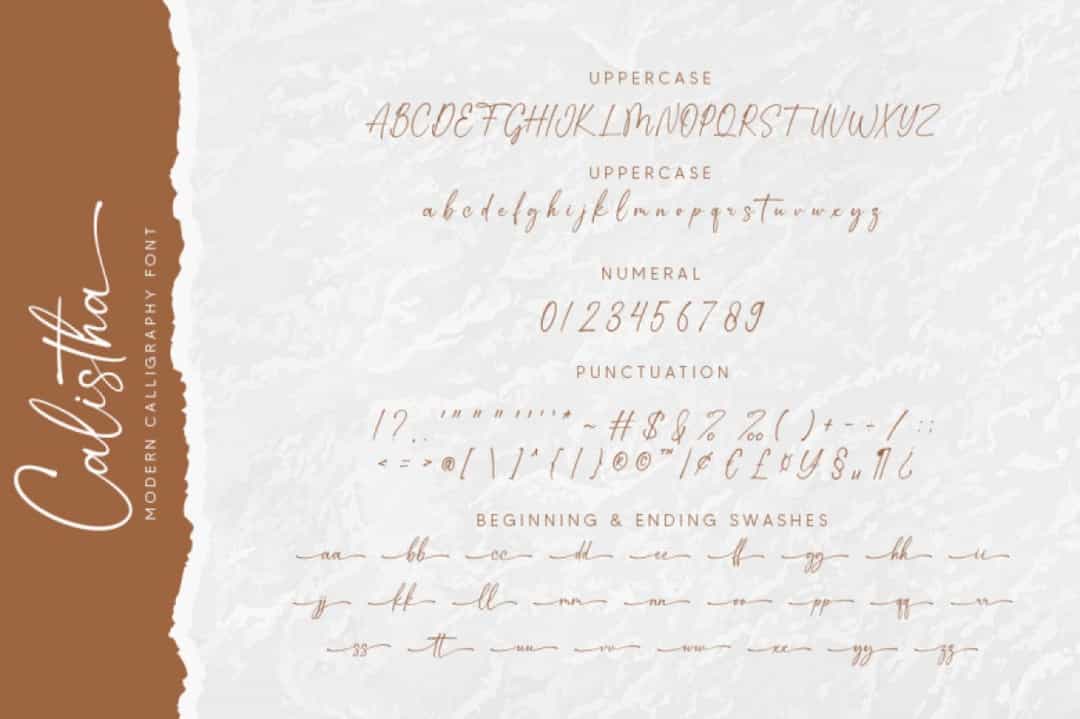 Calistha
MODERN CALLIGRAPHY FONT
UPPERCASE
ABCDEFGHIJKLMNOPQRSTUVWXYZ
UPPERCASE
abcdefghijklmnopqrstuvwxyz
NUMERAL
0123456789
PUNCTUATION
~ # $ & % ‰ ( ) + - - / : ;
< = > @ [ \ ] ^ { | } ® © ™ | ¢ € £ ¤ ¥ § „ ¶ ¿
BEGINNING & ENDING SWASHES
aa bb cc dd ee ff gg hh ii
jj kk ll mm nn oo pp qq rr
ss tt uu vv ww xx yy zz